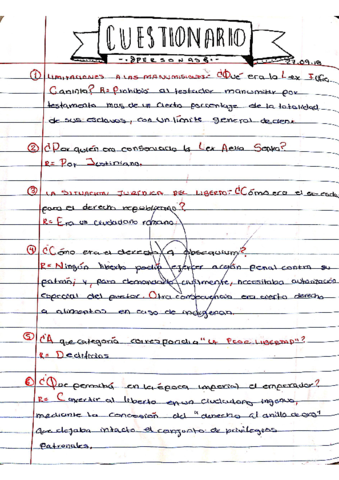 CUESTIONARIO
-·PERSONAS·-
27.09.18
① LIMITACIONES A LAS MANUMISIONES- ¿Qué era la Lex Fufia
Caninia? R= Prohibió al testador manumitir por
testamento más de un cierto porcentaje de la totalidad
de sus esclavos, con un límite general de cien.
② ¿Por quién era conservada la Lex Aelia Sentia?
R= Por Justiniano.
③ LA SITUACIÓN JURÍDICA DEL LIBERTO- ¿Cómo era el
para el derecho republicano?
R= Era un ciudadano romano.
④ ¿Cómo era el derecho a obsequium?
R= Ningún liberto podía ejercer acción penal contra su
patrón; y, para demandarlo civilmente, necesitaba autorización
especial del pretor. Otra consecuencia era cierto derecho
a alimentos en caso de indigencia.
⑤ ¿A que categoría correspondía
R= Dediticios
⑥ ¿Que permitía en la época imperial el emperador?
R= Convertir al liberto en un ciudadano ingenuo,
mediante la concesión del "derecho al anillo de oro"
que dejaba intacto el conjunto de privilegios
Patronales.